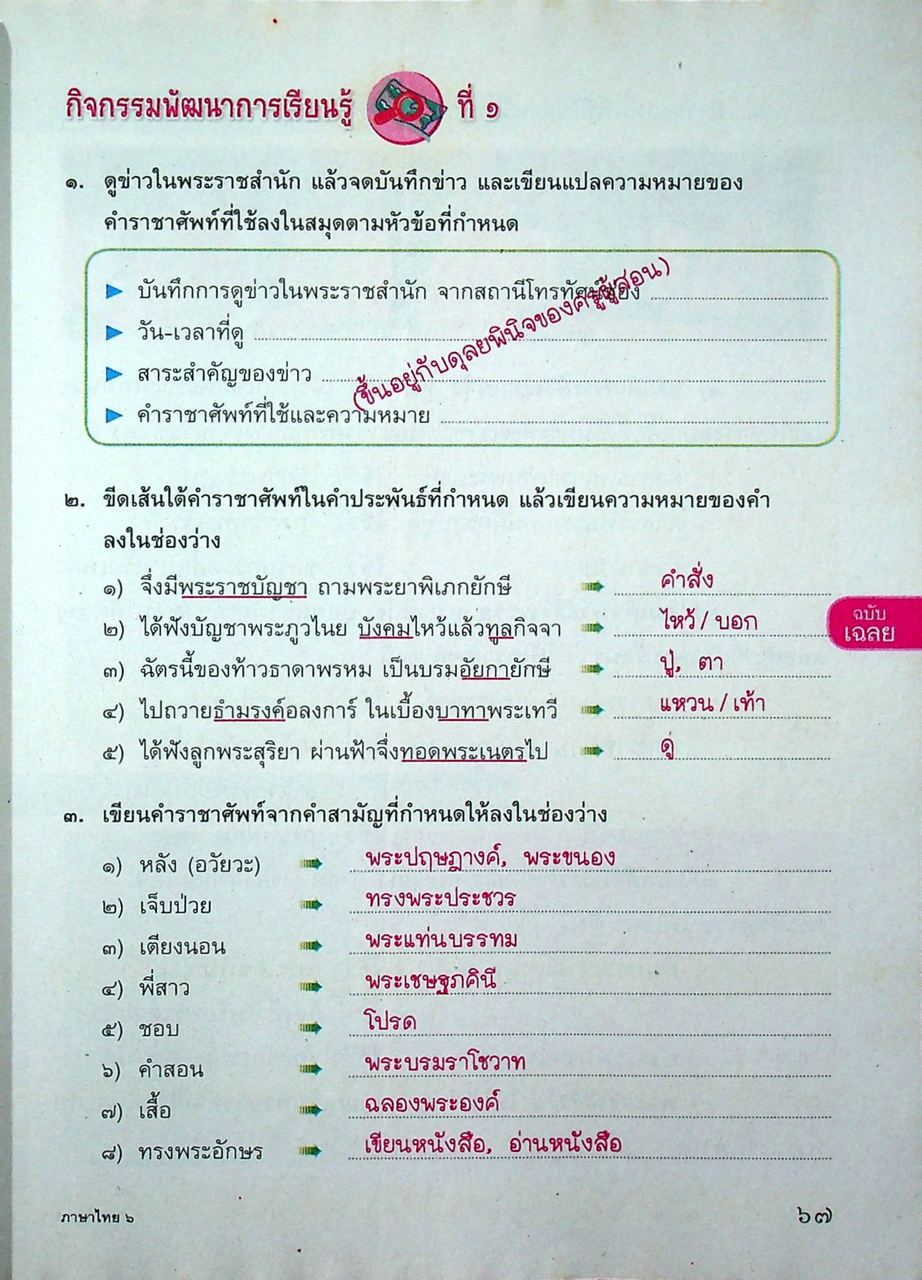 กิจกรรมพัฒนาการเรียนรู้ ที่ ๑
๑. ดูข่าวในพระราชสำนัก แล้วจดบันทึกข่าว และเขียนแปลความหมายของ
คำราชาศัพท์ที่ใช้ลงในสมุดตามหัวข้อที่กำหนด
บันทึกการดูข่าวในพระราชสำนัก จากสถานีโทรทัศน์ช่อง
วัน-เวลาที่ดู
สาระสำคัญของข่าว
คำราชาศัพท์ที่ใช้และความหมาย
(ขึ้นอยู่กับดุลยพินิจของครูผู้สอน)
๒. ขีดเส้นใต้คำราชาศัพท์ในคำประพันธ์ที่กำหนด แล้วเขียนความหมายของคำ
ลงในช่องว่าง
๑) จึ่งมีพระราชบัญชา ถามพระยาพิเภกยักษี คำสั่ง
๒) ได้ฟังบัญชาพระภูวไนย บังคมไหว้แล้วทูลกิจจา ไหว้ / บอก
๓) ฉัตรนี้ของท้าวธาดาพรหม เป็นบรมอัยกายักษี ปู่, ตา
๔) ไปถวายธำมรงค์อลงการ์ ในเบื้องบาทาพระเทวี แหวน / เท้า
๕) ได้ฟังลูกพระสุริยา ผ่านฟ้าจึ่งทอดพระเนตรไป ดู
ฉบับ
เฉลย
๓. เขียนคำราชาศัพท์จากคำสามัญที่กำหนดให้ลงในช่องว่าง
๑) หลัง (อวัยวะ) พระปฤษฎางค์, พระขนอง
๒) เจ็บป่วย ทรงพระประชวร
๓) เตียงนอน พระแท่นบรรทม
๔) พี่สาว พระเชษฐภคินี
๕) ชอบ โปรด
๖) คำสอน พระบรมราโชวาท
๗) เสื้อ ฉลองพระองค์
๘) ทรงพระอักษร เขียนหนังสือ, อ่านหนังสือ
ภาษาไทย ๖
๖๗